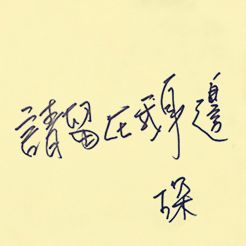 請留在我身邊
琛